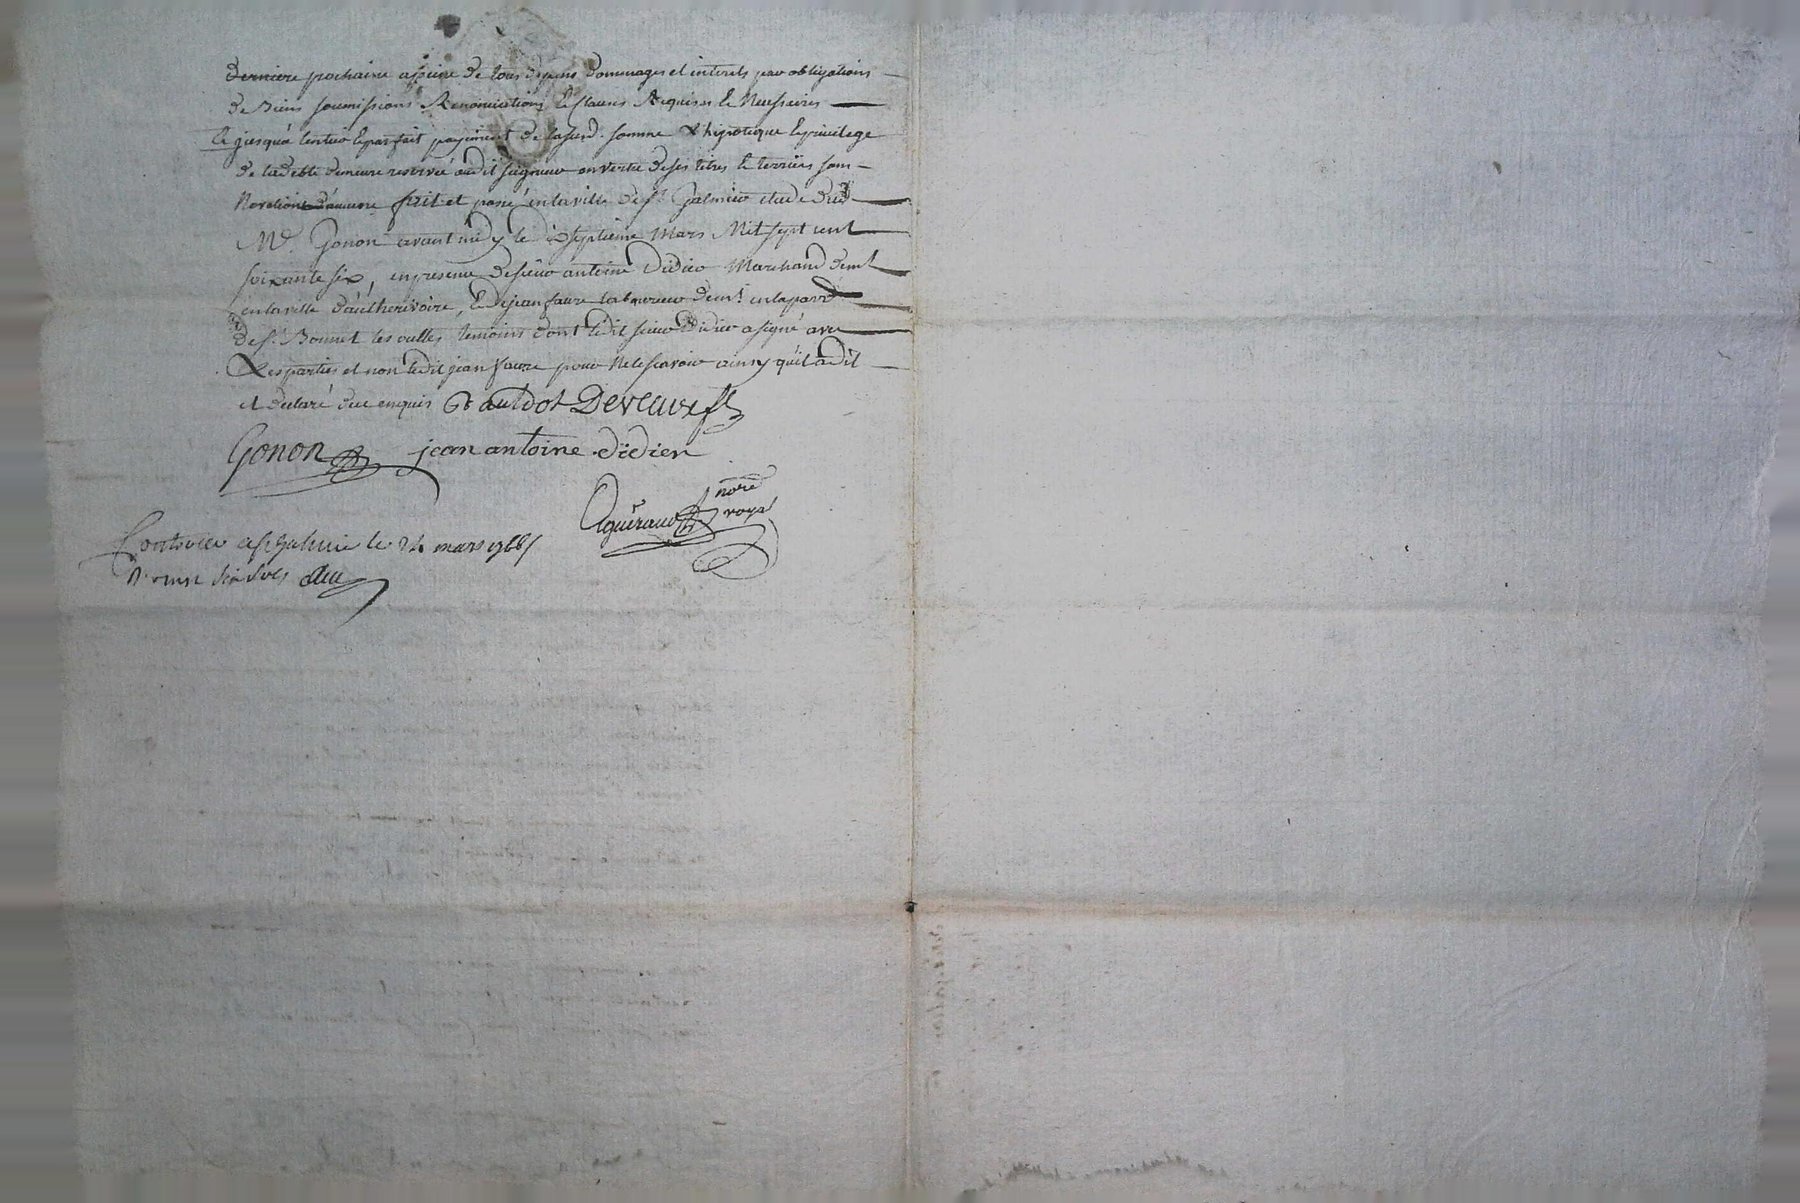 Derniere prochaine apeine de tous depens dommages et interets par obligations
de Biens soumissions Renonciations & clauses Requises & Necessaires
Et jusqua lentier & parfait payement de lasusd. somme L'hipoteque & privilege
de ladebte demeure reservée audit seigneur en vertu de ses titres & terriers sans
Novation fait et passé en la ville de St Galmier etude dud
Me Gonon avant midy le dixseptieme Mars Mil sept cent
soixante six, en presence de sieur antoine Didier Marchand demt
en la ville d'aultherivoire, & de jean faure laboureur demt. en la parr
de st. Bonnet les oulles temoins dont ledit sieur Didier a signé avec
Les parties et non ledit jean faure pour ne le scavoir ainsy quil a dit
et declaré de ce enquis Deveaux
Gonon jean antoine didier
nore
royal
Controllé a st galmier le 24 mars 1766
R. six sols